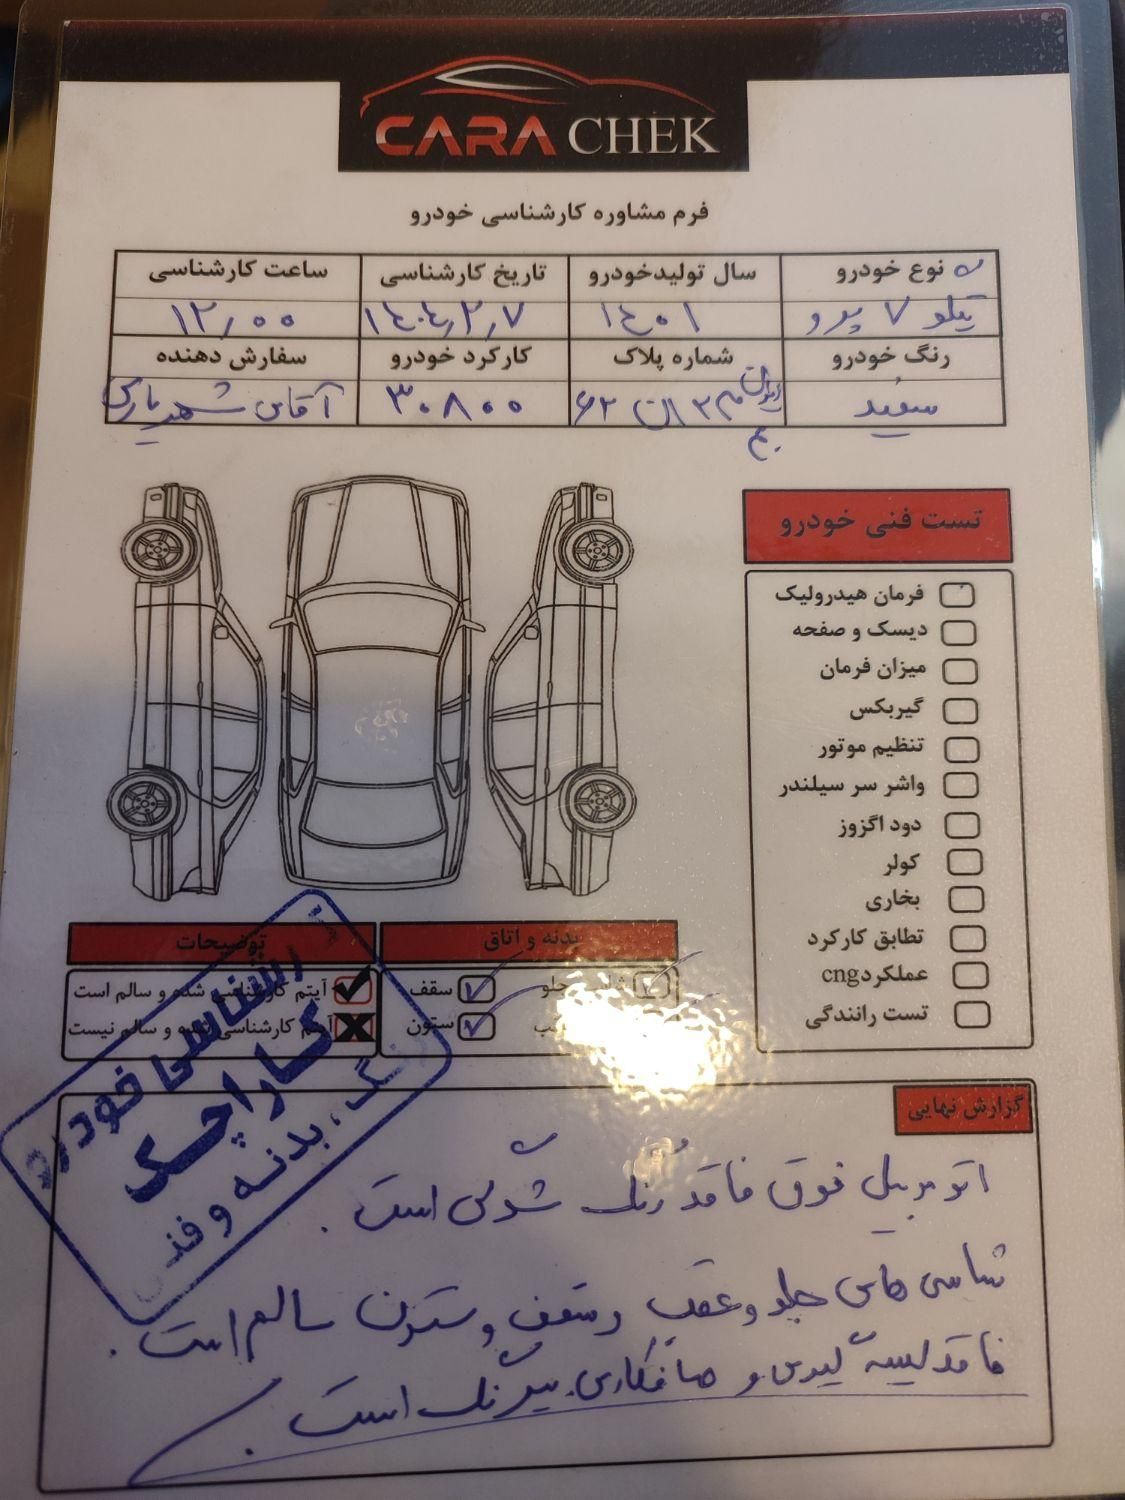 CARA CHEK
فرم مشاوره کارشناسی خودرو
نوع خودرو سال تولیدخودرو تاریخ کارشناسی ساعت کارشناسی
تیگو ۷ پرو ۱۴۰۱ ۱۴۰۴٫۲٫۷ ۱۲٫۰۰
رنگ خودرو شماره پلاک کارکرد خودرو سفارش دهنده
سفید ۳۰۸۰۰ آقای
تست فنی خودرو
فرمان هیدرولیک
دیسک و صفحه
میزان فرمان
گیربکس
تنظیم موتور
واشر سر سیلندر
دود اگزوز
کولر
بخاری
تطابق کارکرد
عملکردcng
تست رانندگی
بدنه و اتاق
جلو سقف
ستون
توضیحات
آیتم کارشناسی شده و سالم است
آیتم کارشناسی شده و سالم نیست
کارشناسی خودرو
کاراچک
رنگ، بدنه و فنی
گزارش نهایی
اتومبیل فوق فاقد رنگ شدگی است.
شاسی های جلو و عقب و سقف و ستون سالم است.
فاقد لیسه گیری و صافکاری بیرنگ است.